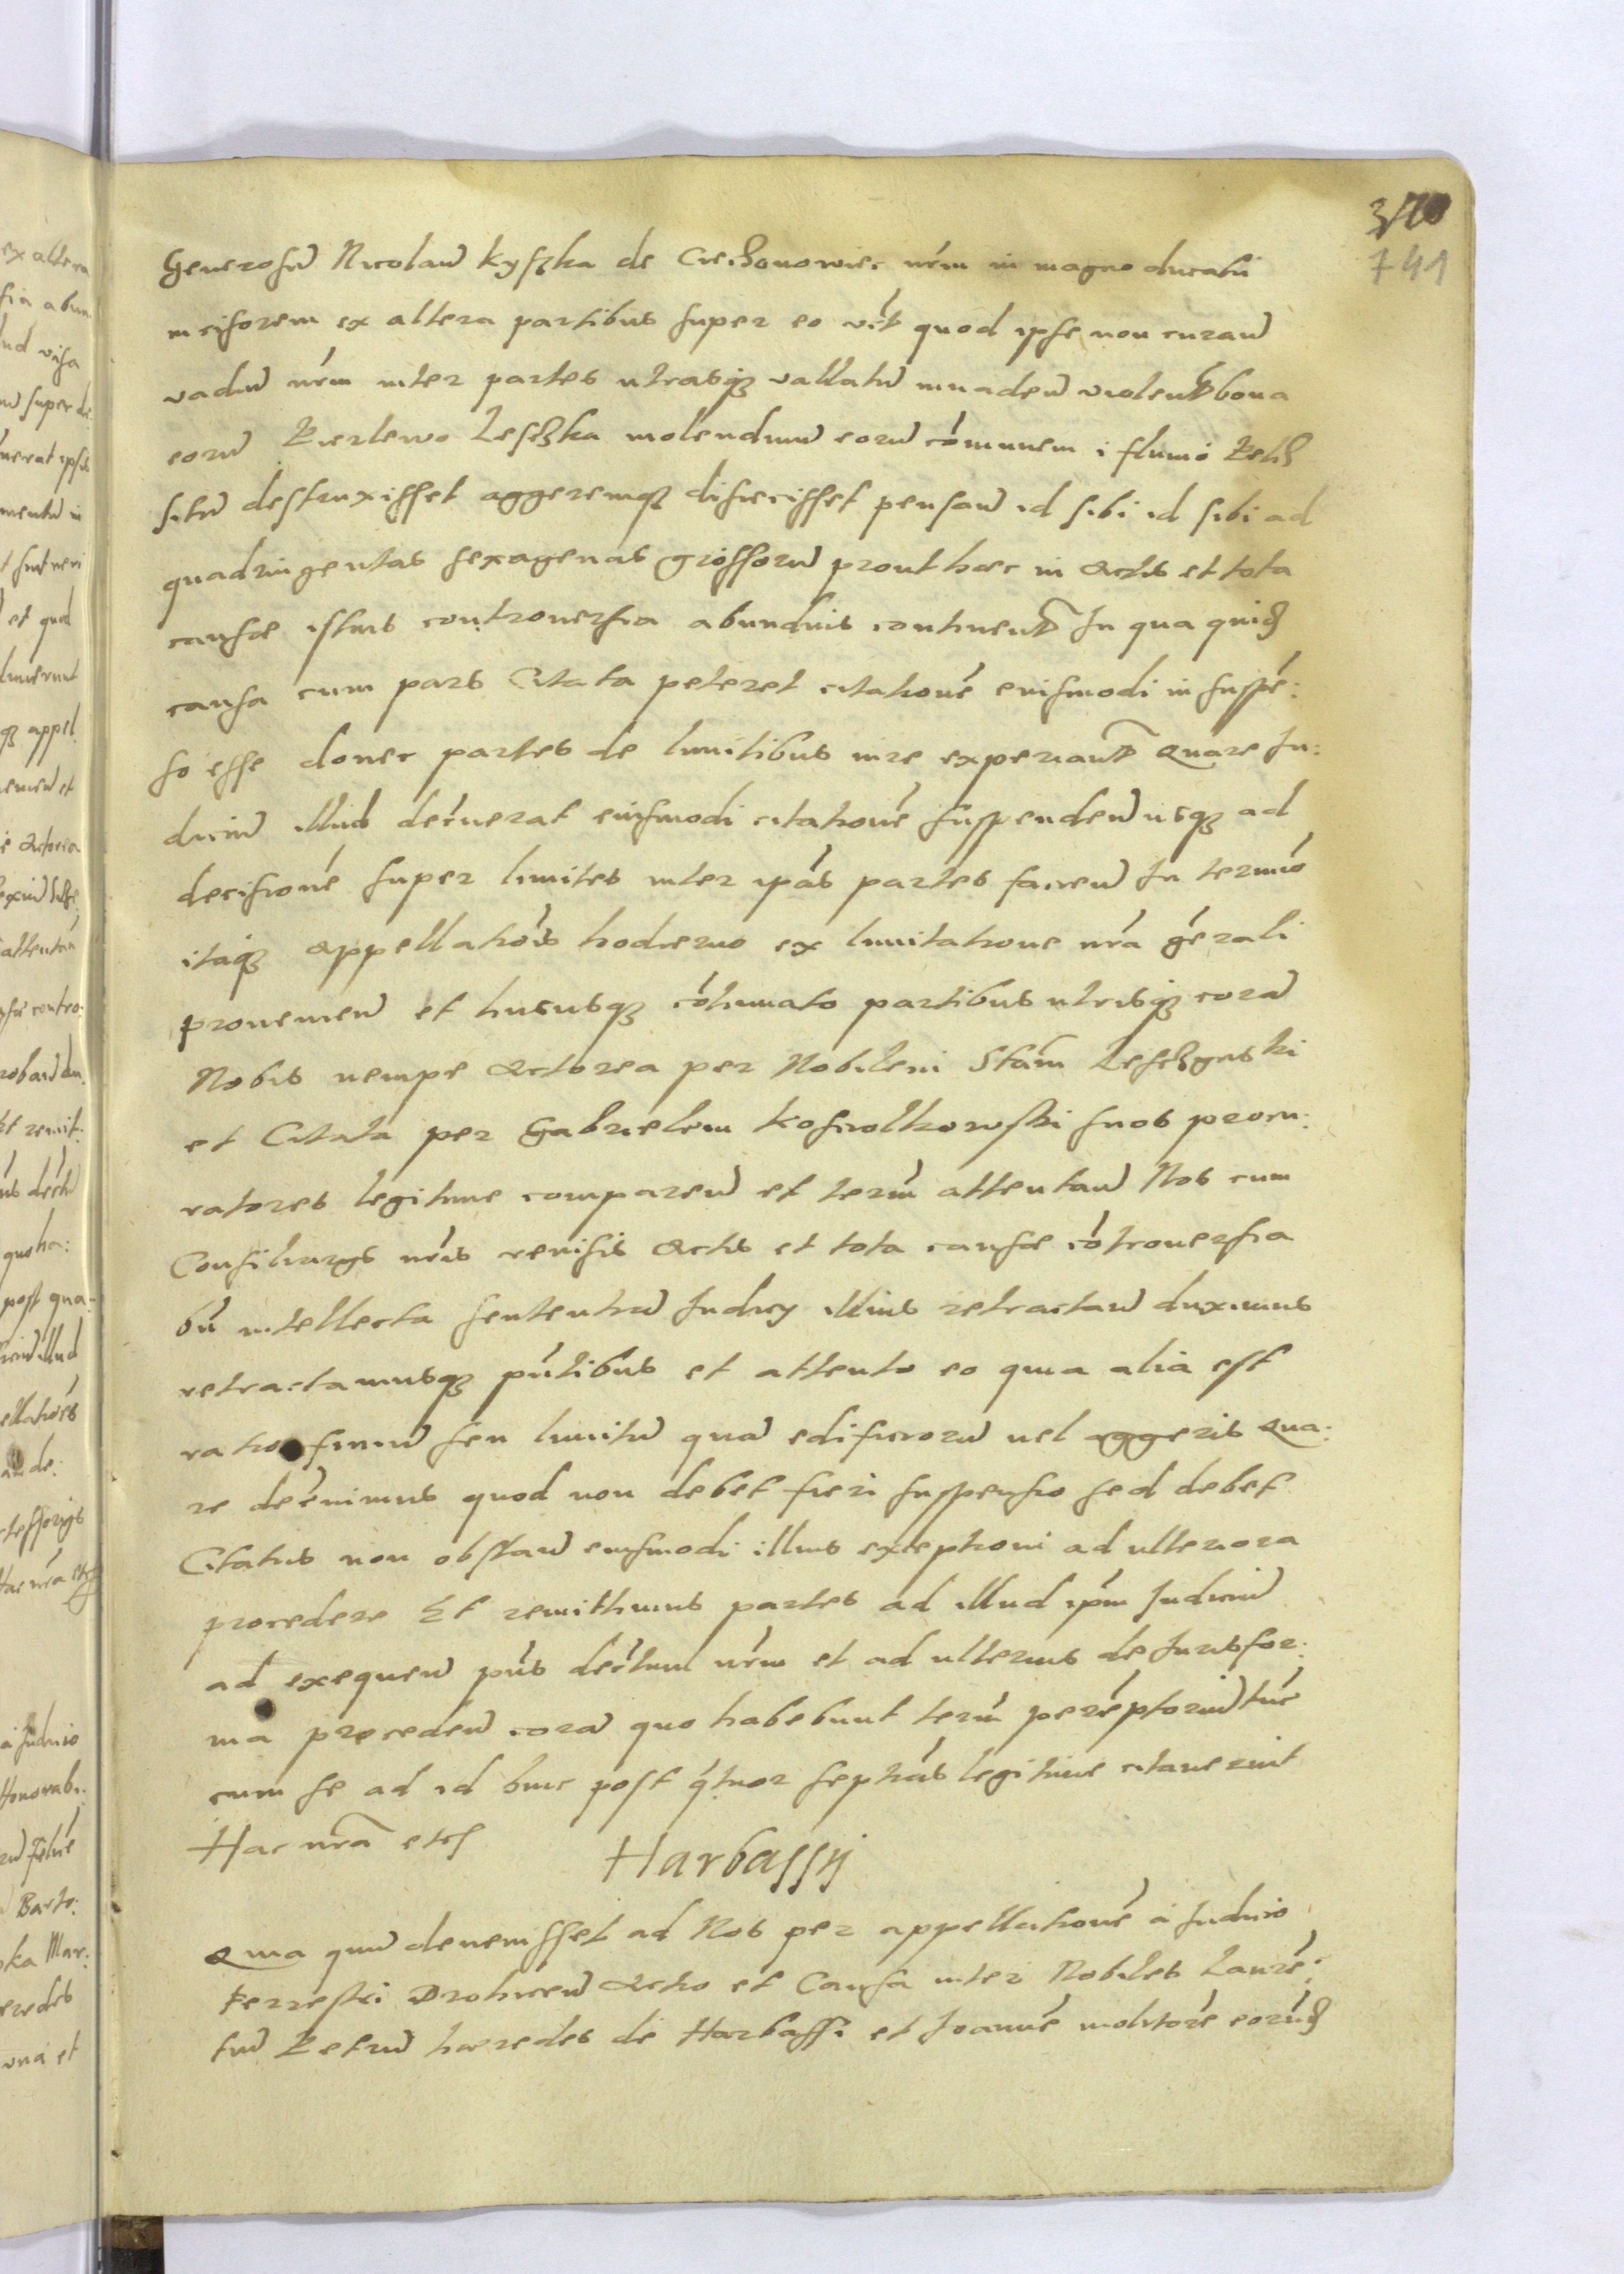 370
741
Generosu Nicolau Kyszka de Ciechonowiec nrm in magno ducatu
incisorem ex altera partibus super eo vit quod ipse non curan
vadiu nrm inter partes utrasq vallatu inuaden violent bona
eoru Kierlewo Leszka molendinu eoru comunem i flumi
situ destruxisset aggeremq disiecisset pensan id sibi id sibi ad
quadringentas sexagenas grossoru prout haec in actis et tota
causae istius controuersia abundius continent In qua quid
causa cum pars Citata peteret citatione eiusmodi in suspe:
so esse donec partes de limitibus iure experiant Quare Iu:
diciu illud decreuerat eiusmodi citatione suspenden usq ad
decisione super limites inter ipas partes facien In termio
itaq appellatois hodierno ex limitatione nra gerali
prouenien et hucusq cotinuato partibus utrisq cora
Nobis nempe Actorea per Nobilem Stam
et Citata per Gabrielem Kosmolkowski suos procu:
ratores legitime comparen et term attentan Nos cum
Consiliarys nris reuisis Actis et tota causae cotrouersia
bn intellecta sententia Iudicy illius retractan duximus
retractamusq pntibus et attento eo quia alia est
ratio finiu seu limitu qua edificioru uel aggeris Qua:
re decreuimus quod non debet fieri suspensio sed debet
Citatus non obstan eiusmodi illius exceptioni ad ulteriora
procedere Et remittimus partes ad illud ipm Iudiciu
ad exequen pns decretum nrm et ad ulterius de Iuris for:
ma proceden cora quo habebunt term peremptoriu tuc
cum se ad id hinc post qtuor septias legitime citauerint
Hac nra etc
Harbassy
Quia quu deuenisset ad Nos per appellatione a Iudicio
Terrestri Drohicen Actio et Causa inter Nobiles Laure:
tiu Petru haeredes de Harbassi et Ioanne molitore eorud